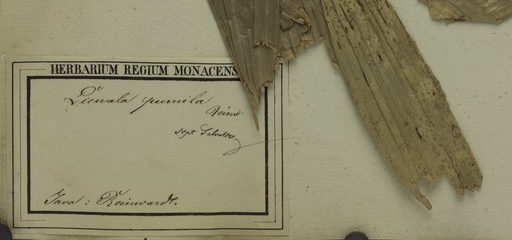 HERBARIUM REGIUM MONACENS
Licuala pumila
Reinw.
Java: Reinwardt.